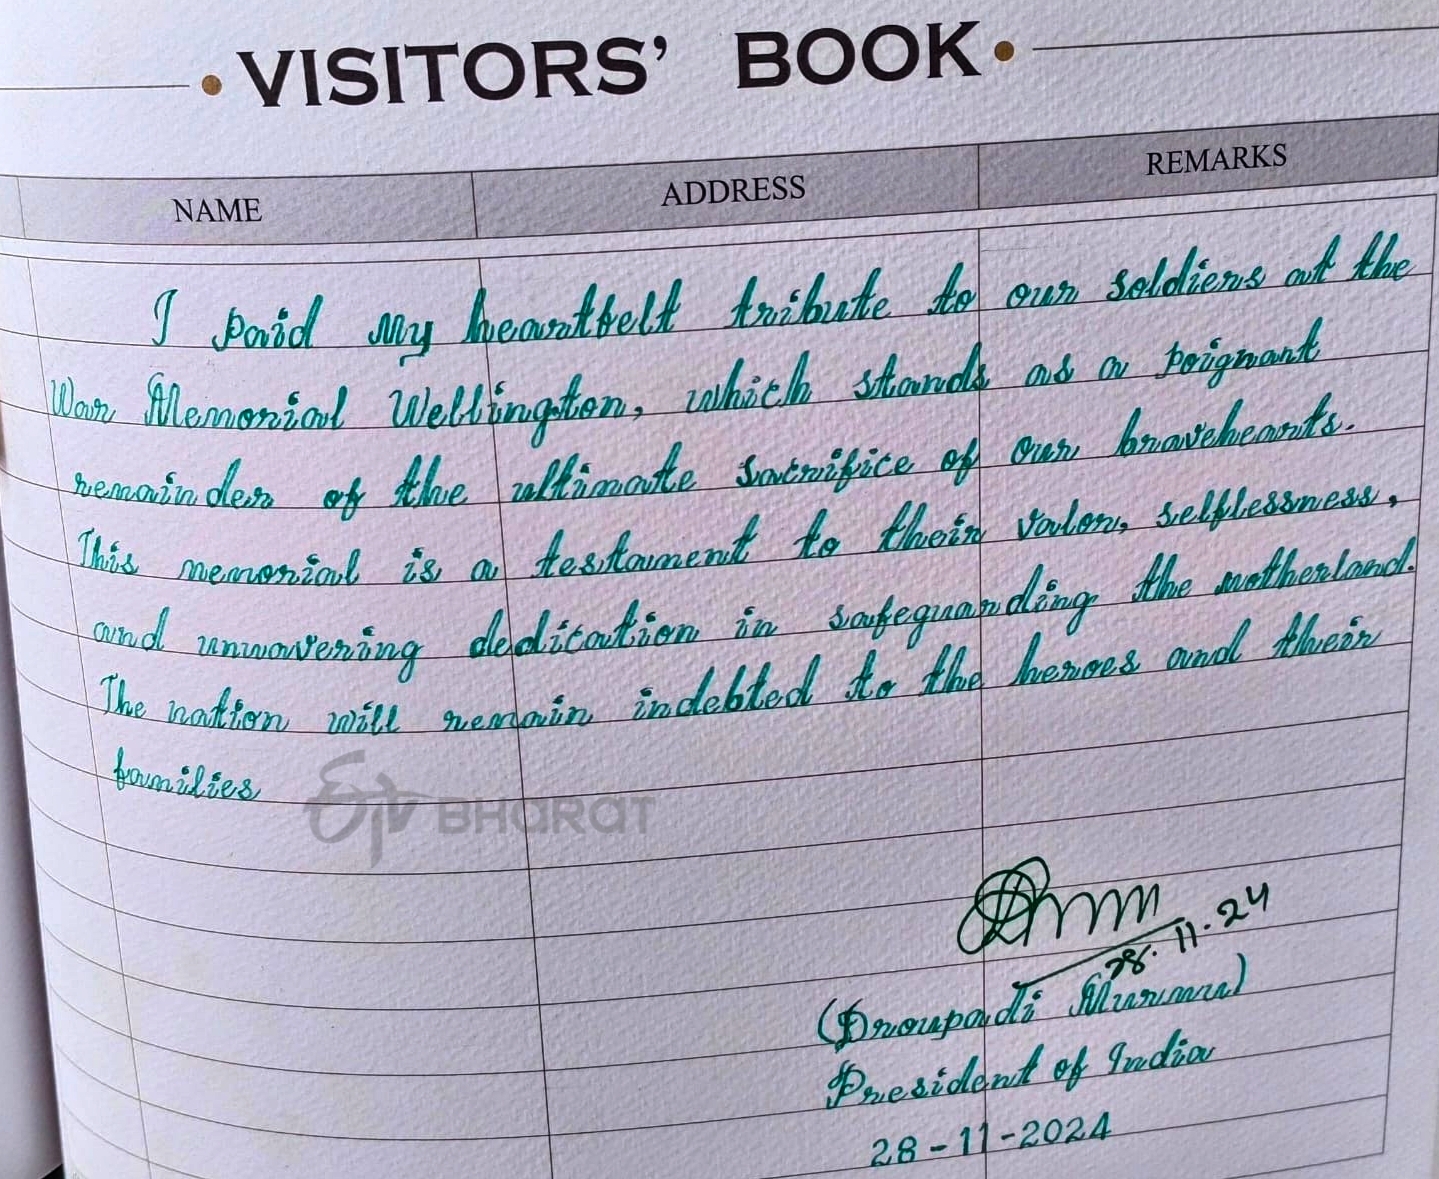 VISITORS' BOOK
NAME ADDRESS REMARKS
I paid my heartfelt tribute to our soldiers at the
War Memorial Wellington, which stands as a poignant
remainder of the ultimate sacrifice of our bravehearts.
This memorial is a testament to their valor, selflessness,
and unwavering dedication in safeguarding the motherland.
The nation will remain indebted to the heroes and their
families
etv BHARAT
28.11.24
(Droupadi Murmu)
President of India
28-11-2024